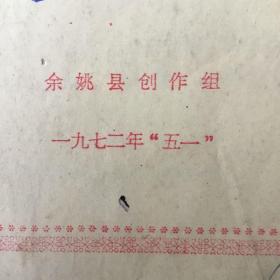 余姚县创作组
一九七二年“五一”